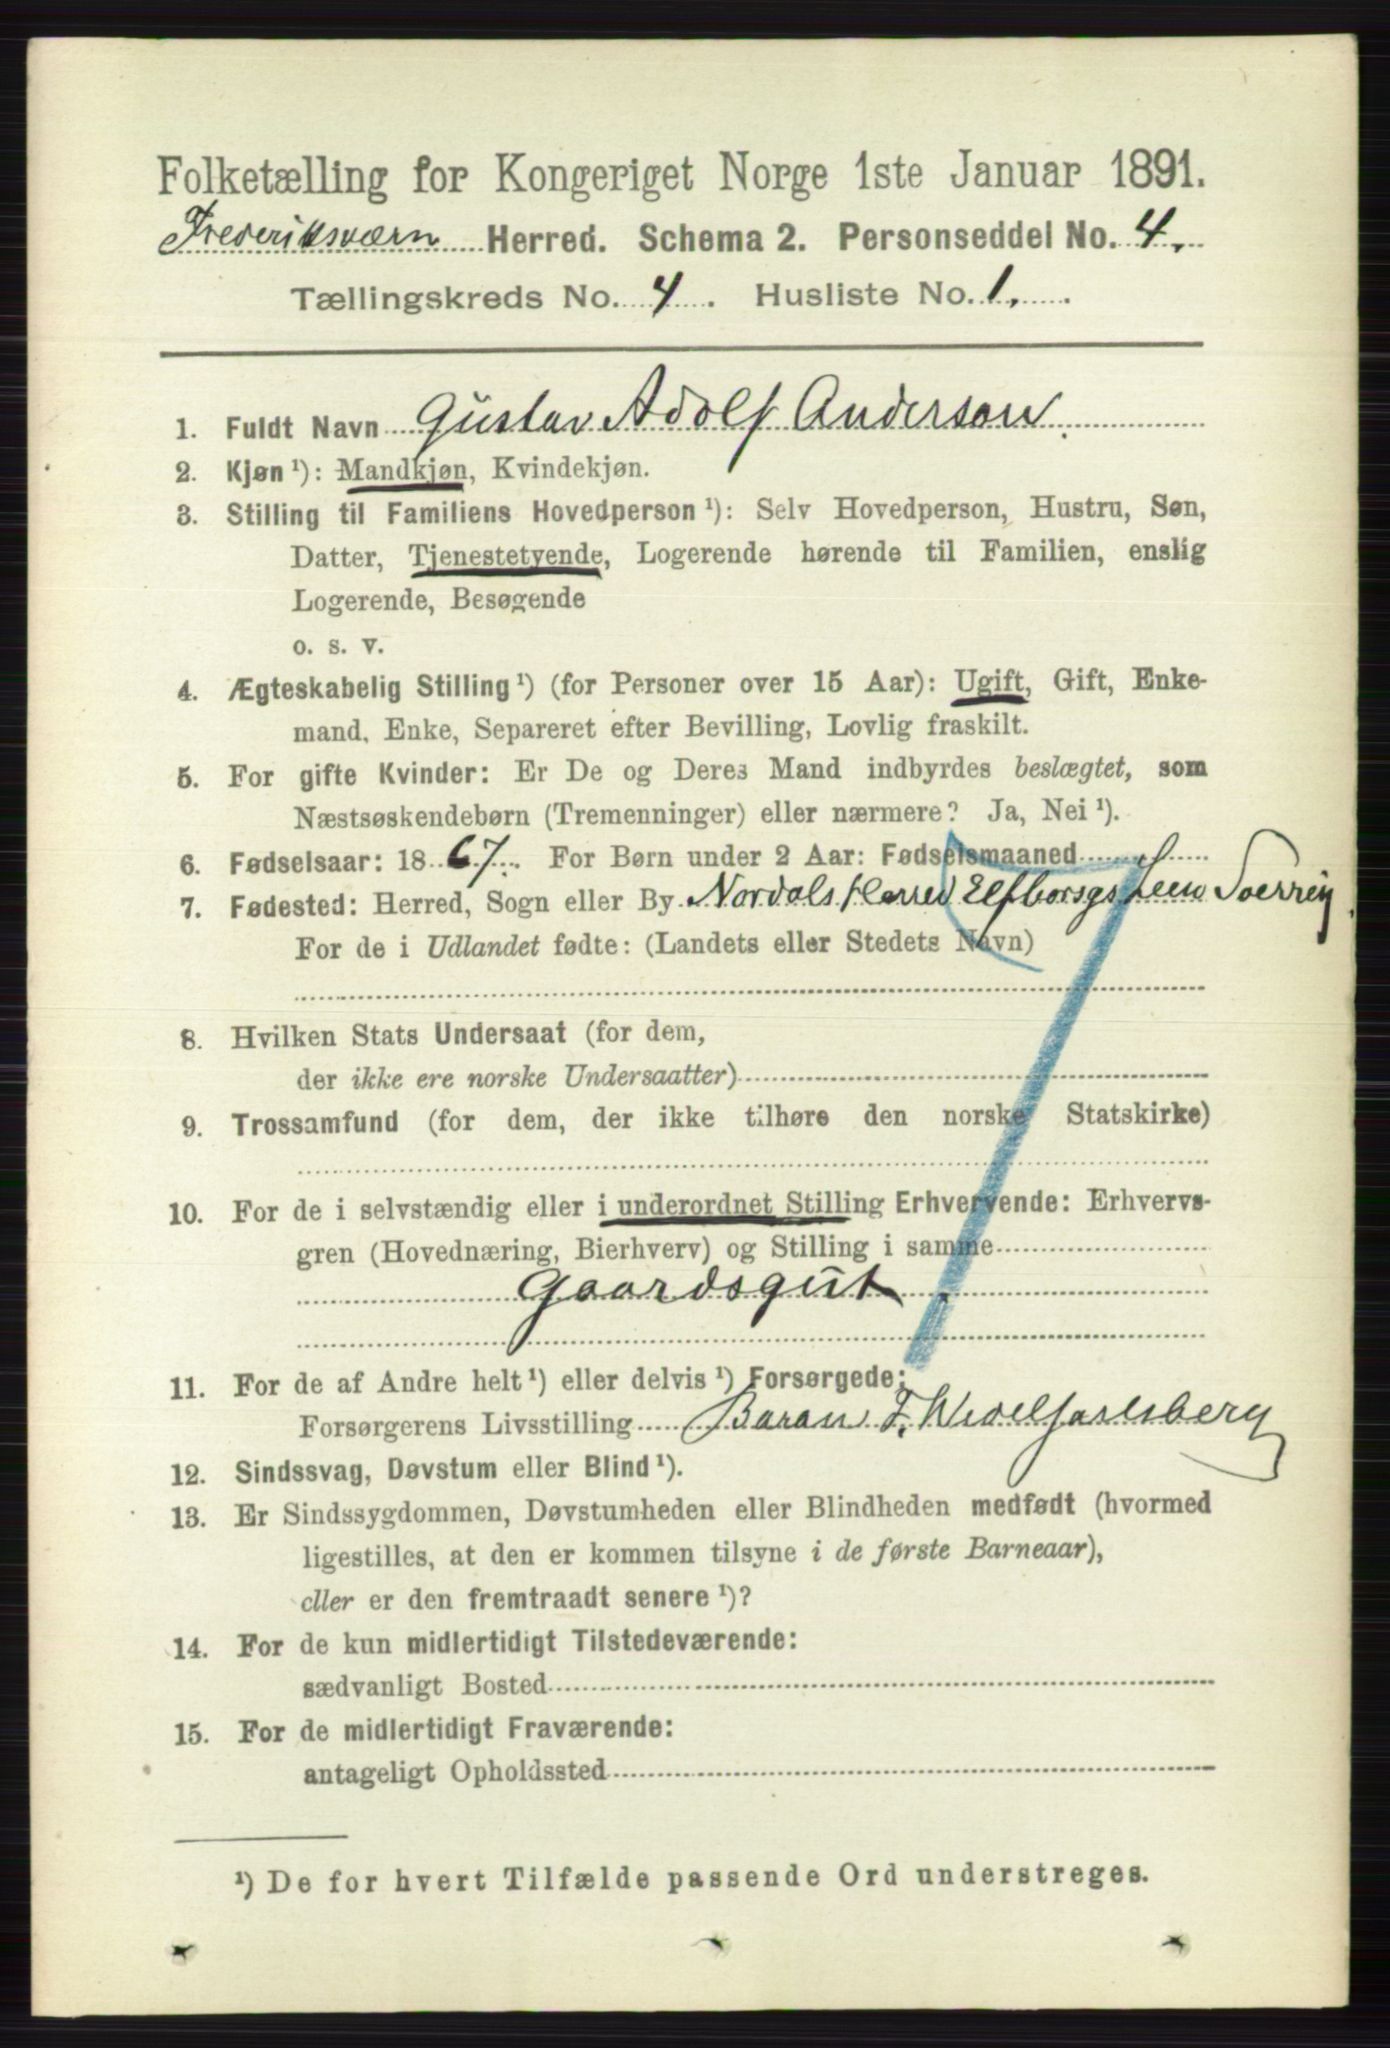 Folketælling for Kongeriget Norge 1ste Januar 1891.
Frederiksværn Herred. Schema 2. Personseddel No. 4.
Tællingskreds No. 4. Husliste No. 1.
1. Fuldt Navn Gustav Adolf Anderson
2. Kjøn ¹): Mandkjøn, Kvindekjøn.
3. Stilling til Familiens Hovedperson ¹): Selv Hovedperson, Hustru, Søn,
Datter, Tjenestetyende, Logerende hørende til Familien, enslig
Logerende, Besøgende
o. s. v.
4. Ægteskabelig Stilling ¹) (for Personer over 15 Aar): Ugift, Gift, Enke-
mand, Enke, Separeret efter Bevilling, Lovlig fraskilt.
5. For gifte Kvinder: Er De og Deres Mand indbyrdes beslægtet, som
Næstsøskendebørn (Tremenninger) eller nærmere? Ja, Nei ¹).
6. Fødselsaar: 1867. For Børn under 2 Aar: Fødselsmaaned
7. Fødested: Herred, Sogn eller By Nordals Herred Elfborsgs Leen Sverrig
For de i Udlandet fødte: (Landets eller Stedets Navn)
8. Hvilken Stats Undersaat (for dem,
der ikke ere norske Undersaatter)
9. Trossamfund (for dem, der ikke tilhøre den norske Statskirke)
10. For de i selvstændig eller i underordnet Stilling Erhvervende: Erhvervs-
gren (Hovednæring, Bierhverv) og Stilling i samme
Gaardsgut.
11. For de af Andre helt ¹) eller delvis ¹) Forsørgede:
Forsørgerens Livsstilling Baron F. Wedel Jarlsberg
12. Sindssvag, Døvstum eller Blind ¹).
13. Er Sindssygdommen, Døvstumheden eller Blindheden medfødt (hvormed
ligestilles, at den er kommen tilsyne i de første Barneaar),
eller er den fremtraadt senere ¹)?
14. For de kun midlertidigt Tilstedeværende:
sædvanligt Bosted
15. For de midlertidigt Fraværende:
antageligt Opholdssted
¹) De for hvert Tilfælde passende Ord understreges.